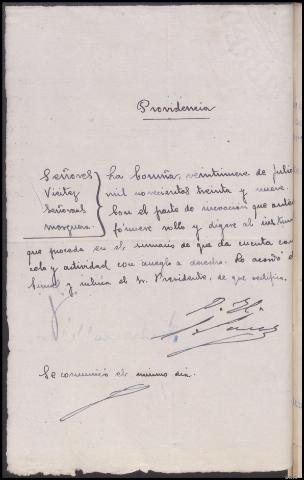 Providencia
Señores
Vieitez
Señorans
Mosquera
La Coruña, veintinueve de Julio
mil novecientos treinta y nueve.
Con el parte de incoación que antec
fórmese rollo y dígase al instru
que proceda en el sumario de que da cuenta con
celo y actividad con arreglo a derecho. Lo acordó el
y rubrica el Sr. Presidente, de que certifico.
Se comunicó el mismo día.